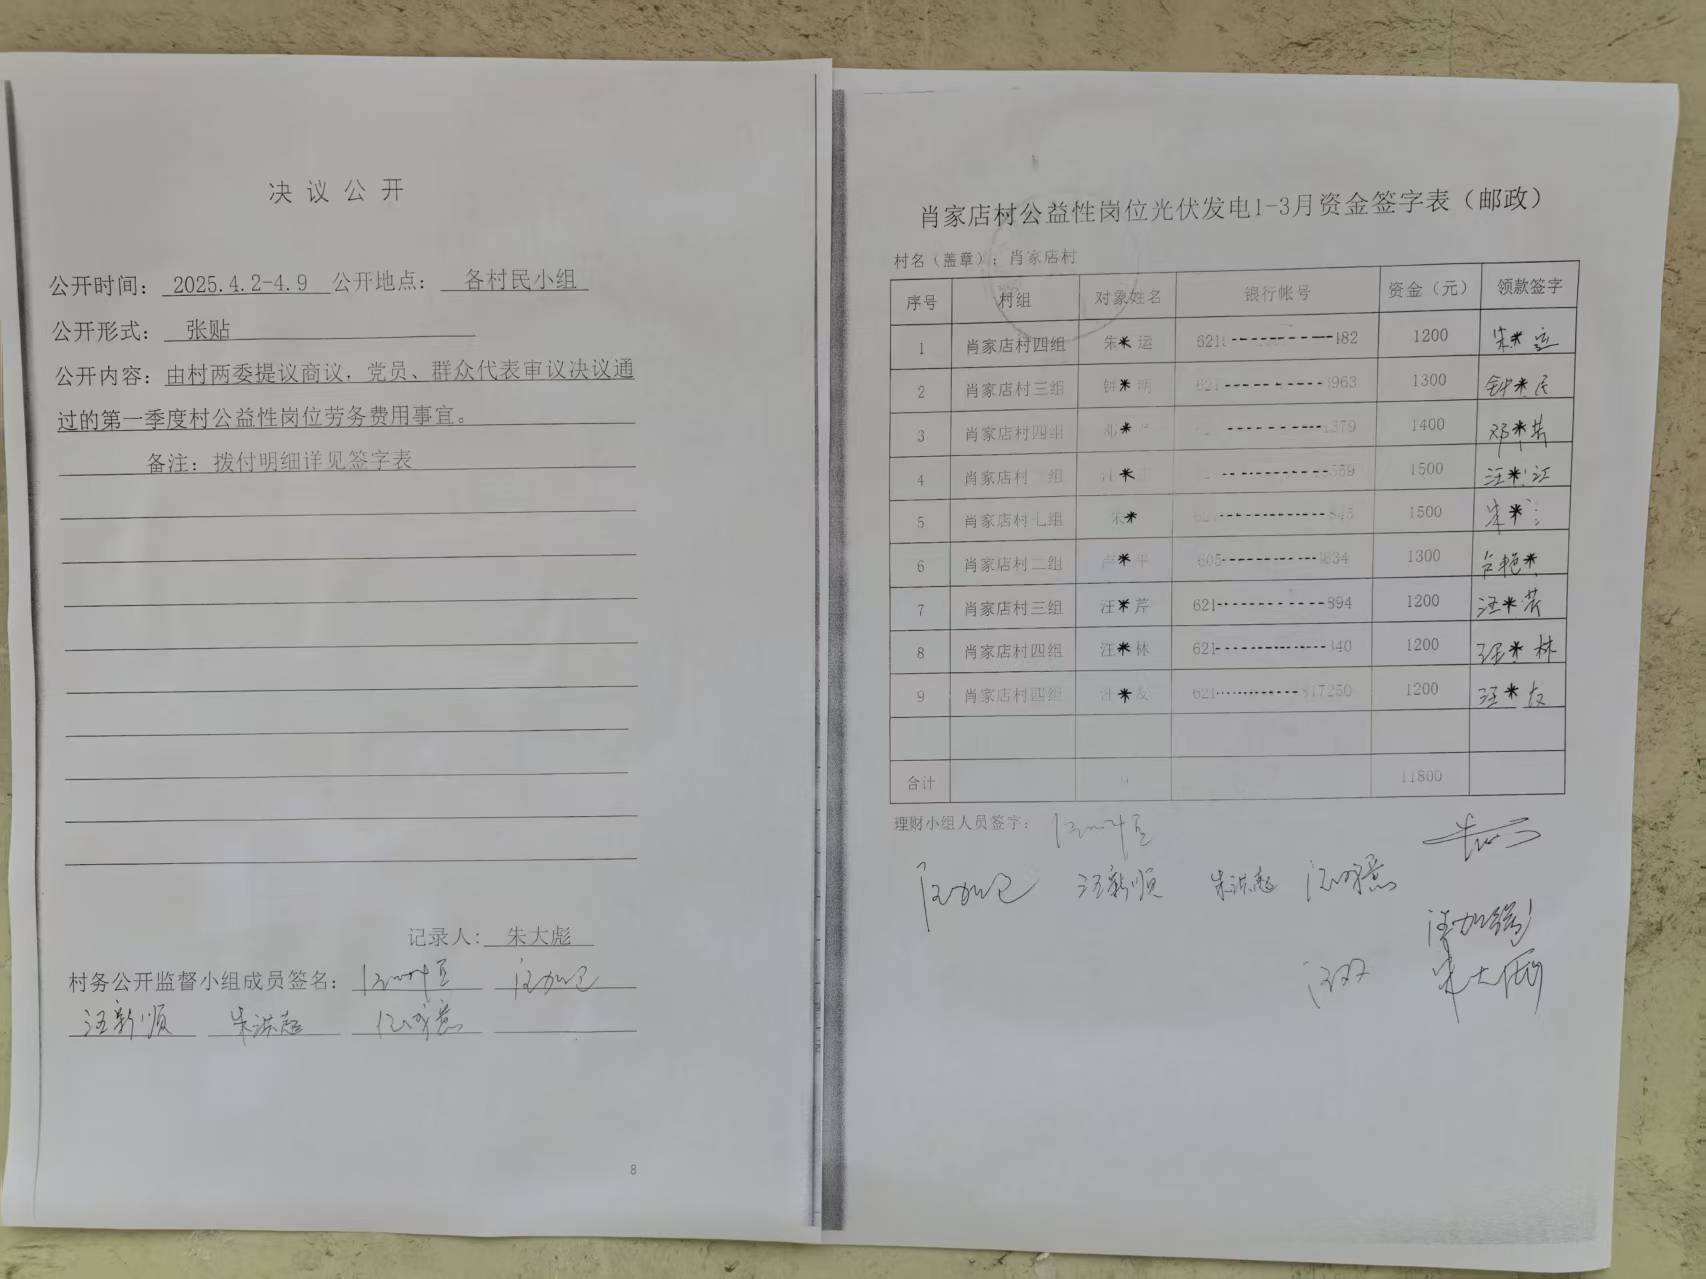 决议公开
公开时间： 2025.4.2-4.9 公开地点： 各村民小组
公开形式： 张贴
公开内容：由村两委提议商议，党员、群众代表审议决议通
过的第一季度村公益性岗位劳务费用事宜。
备注：拨付明细详见签字表
记录人：朱大彪
村务公开监督小组成员签名：
汪新顺 朱洪超
8
肖家店村公益性岗位光伏发电1-3月资金签字表（邮政）
村名（盖章）：肖家店村
序号 村组 对象姓名 银行帐号 资金（元） 领款签字
1 肖家店村四组 朱*运 621-----------182 1200 朱*运
2 肖家店村三组 钟*明 621----------963 1300 钟*民
3 肖家店村四组 邓* ----------379 1400 邓*芳
4 肖家店村 组 * -----------559 1500 汪*江
5 肖家店村七组 朱* ------------ 1500 朱*
6 肖家店村二组 *平 605-----------634 1300 *
7 肖家店村三组 汪*芹 621------------894 1200 汪*芹
8 肖家店村四组 汪*林 621------------140 1200 汪*林
9 肖家店村四组 汪*友 621----------817260 1200 汪*友
合计 11800
理财小组人员签字：
汪新顺 朱洪超
汪加强
朱大彪